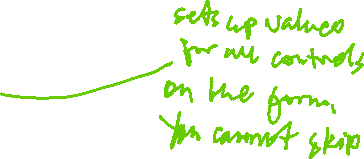 sets up values
for all controls
on the form.
You cannot skip